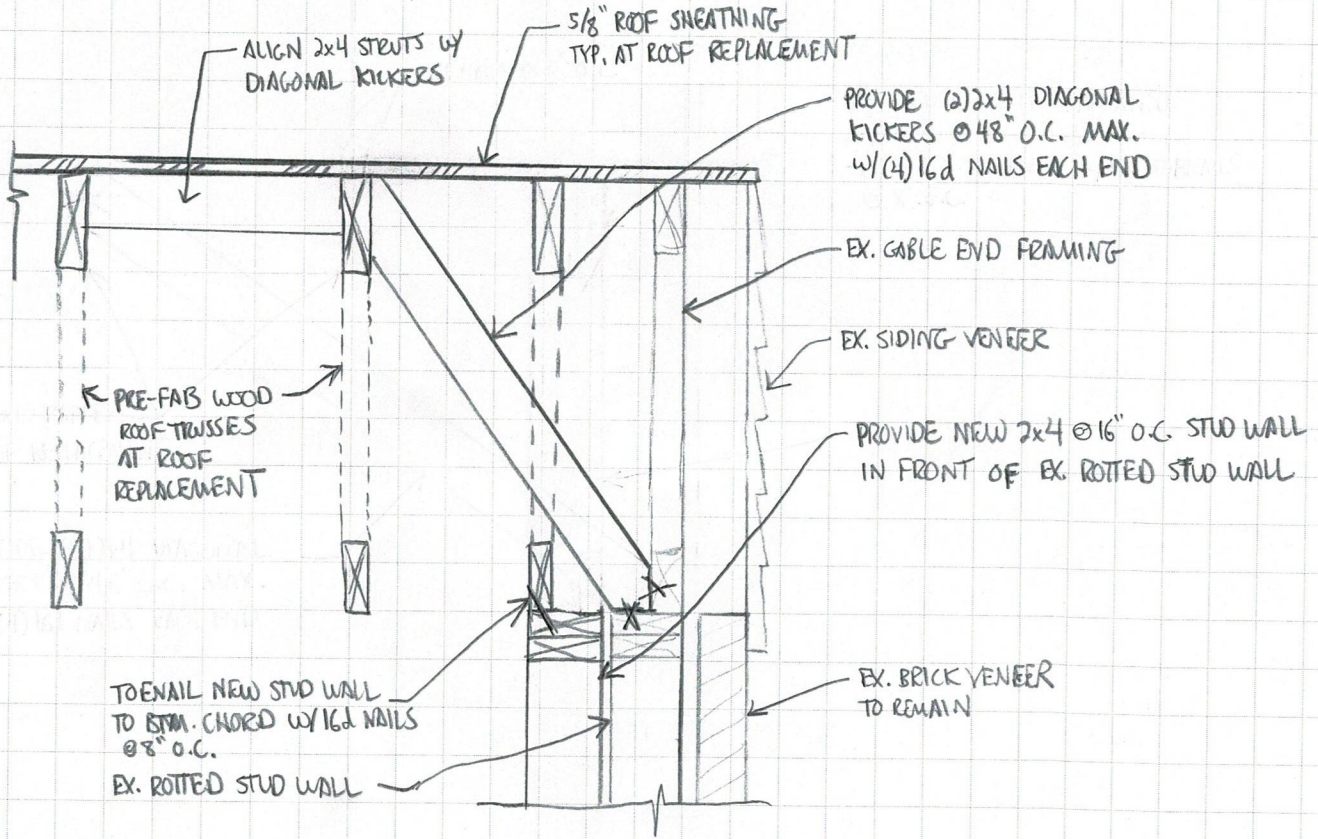 ALIGN 2x4 STRUTS W/
DIAGONAL KICKERS
5/8" ROOF SHEATHING
TYP. AT ROOF REPLACEMENT
PROVIDE (2) 2x4 DIAGONAL
KICKERS @ 48" O.C. MAX.
W/ (4) 16d NAILS EACH END
EX. GABLE END FRAMING
EX. SIDING VENEER
PRE-FAB WOOD
ROOF TRUSSES
AT ROOF
REPLACEMENT
PROVIDE NEW 2x4 @ 16" O.C. STUD WALL
IN FRONT OF EX. ROTTED STUD WALL
TOENAIL NEW STUD WALL
TO BTM. CHORD W/ 16d NAILS
@ 8" O.C.
EX. ROTTED STUD WALL
EX. BRICK VENEER
TO REMAIN